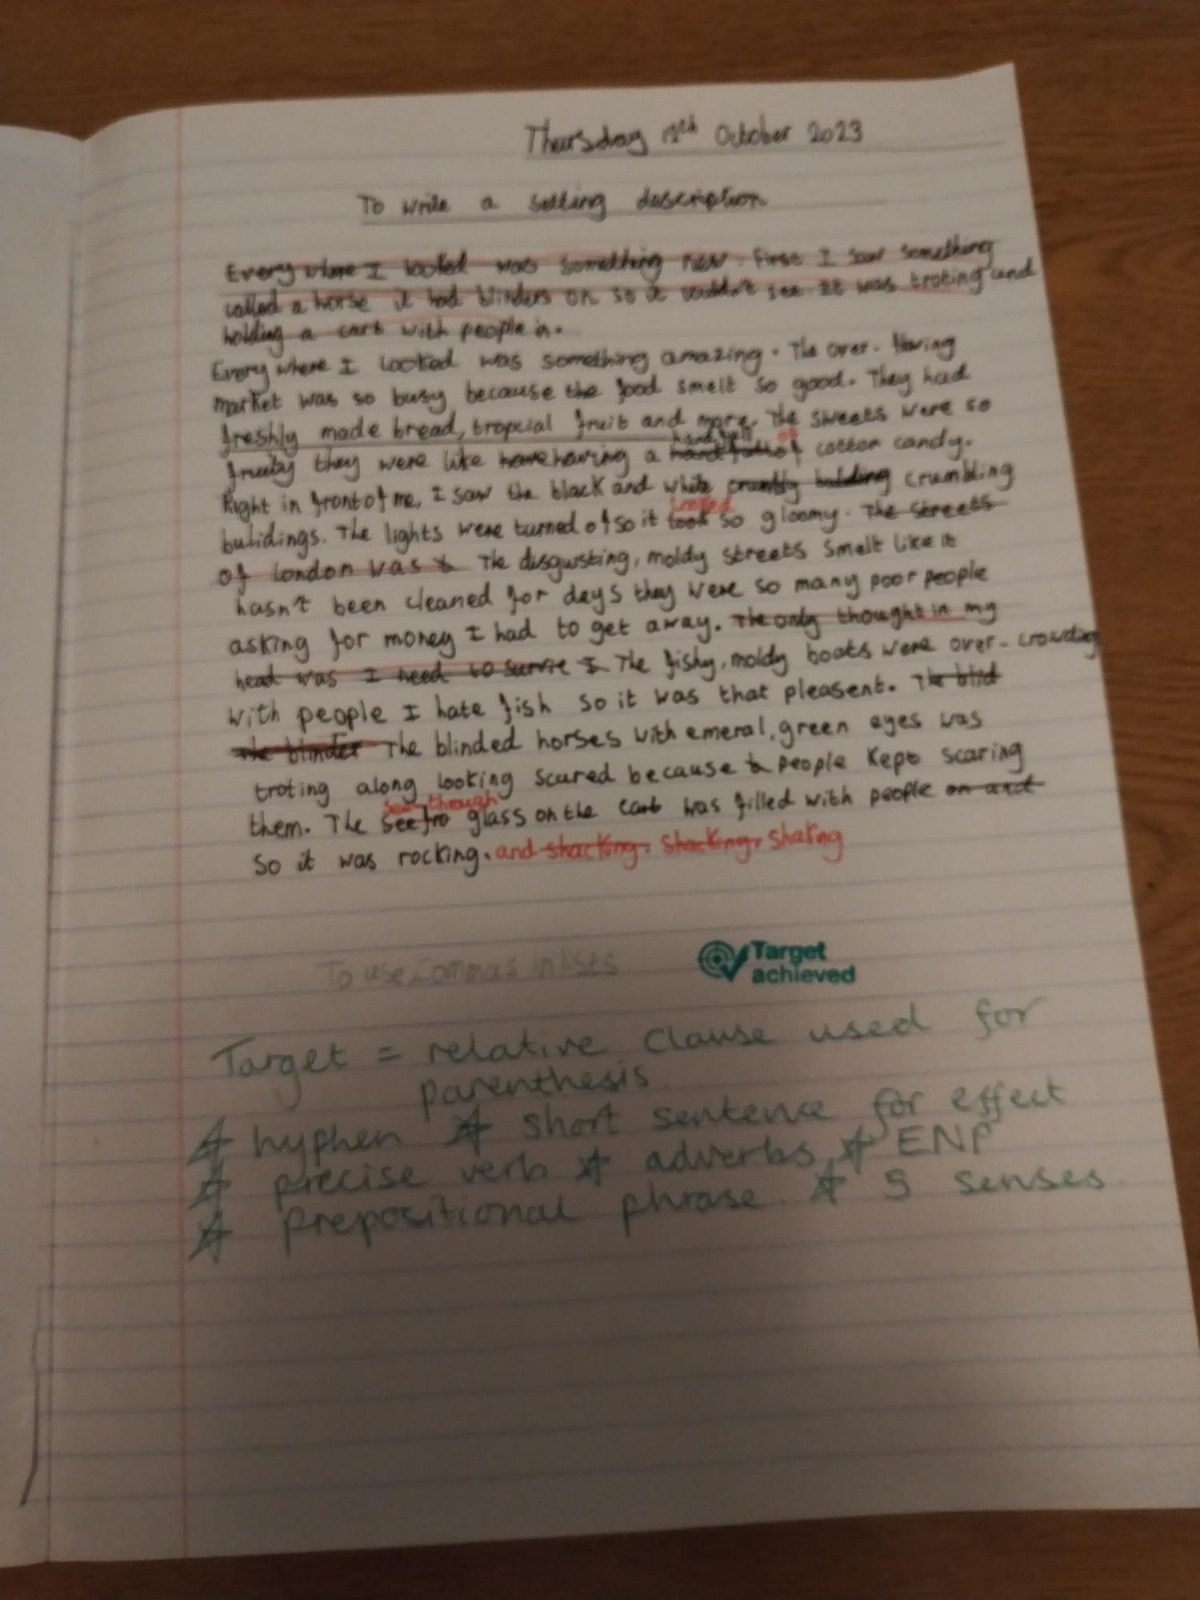 Thursday 12th October 2023
To write a setting description
Every where I looked was something new. First I saw something
called a horse it had blinders on so it couldn't see. It was troting and
holding a cart with people in.
Every where I looked was something amazing. The over-flowing
market was so busy because the food smelt so good. They had
freshly made bread, tropcial fruit and more. The sweets were so
hand full of
fruity they were like having a of cotton candy.
Right in front of me, I saw the black and white building crumbling
looked
bulidings. The lights were turned of so it look so gloomy. The streets
of london was The disgusting, moldy streets smelt like it
hasn't been cleaned for days they were so many poor people
asking for money I had to get away. The only thought in my
head was I need to survive I The fishy, moldy boats were over-crowding
with people I hate fish so it was that pleasent. The blid
The blinder The blinded horses with emeral, green eyes was
troting along looking scared because people kept scaring
see through
them. The seefro glass on the cart was filled with people on and
so it was rocking. and shacking. shacking. shaking
To use commas in lists
Target
achieved
Target = relative clause used for
parenthesis
hyphen short sentence for effect
precise verb adverbs ENP
prepositional phrase 5 senses